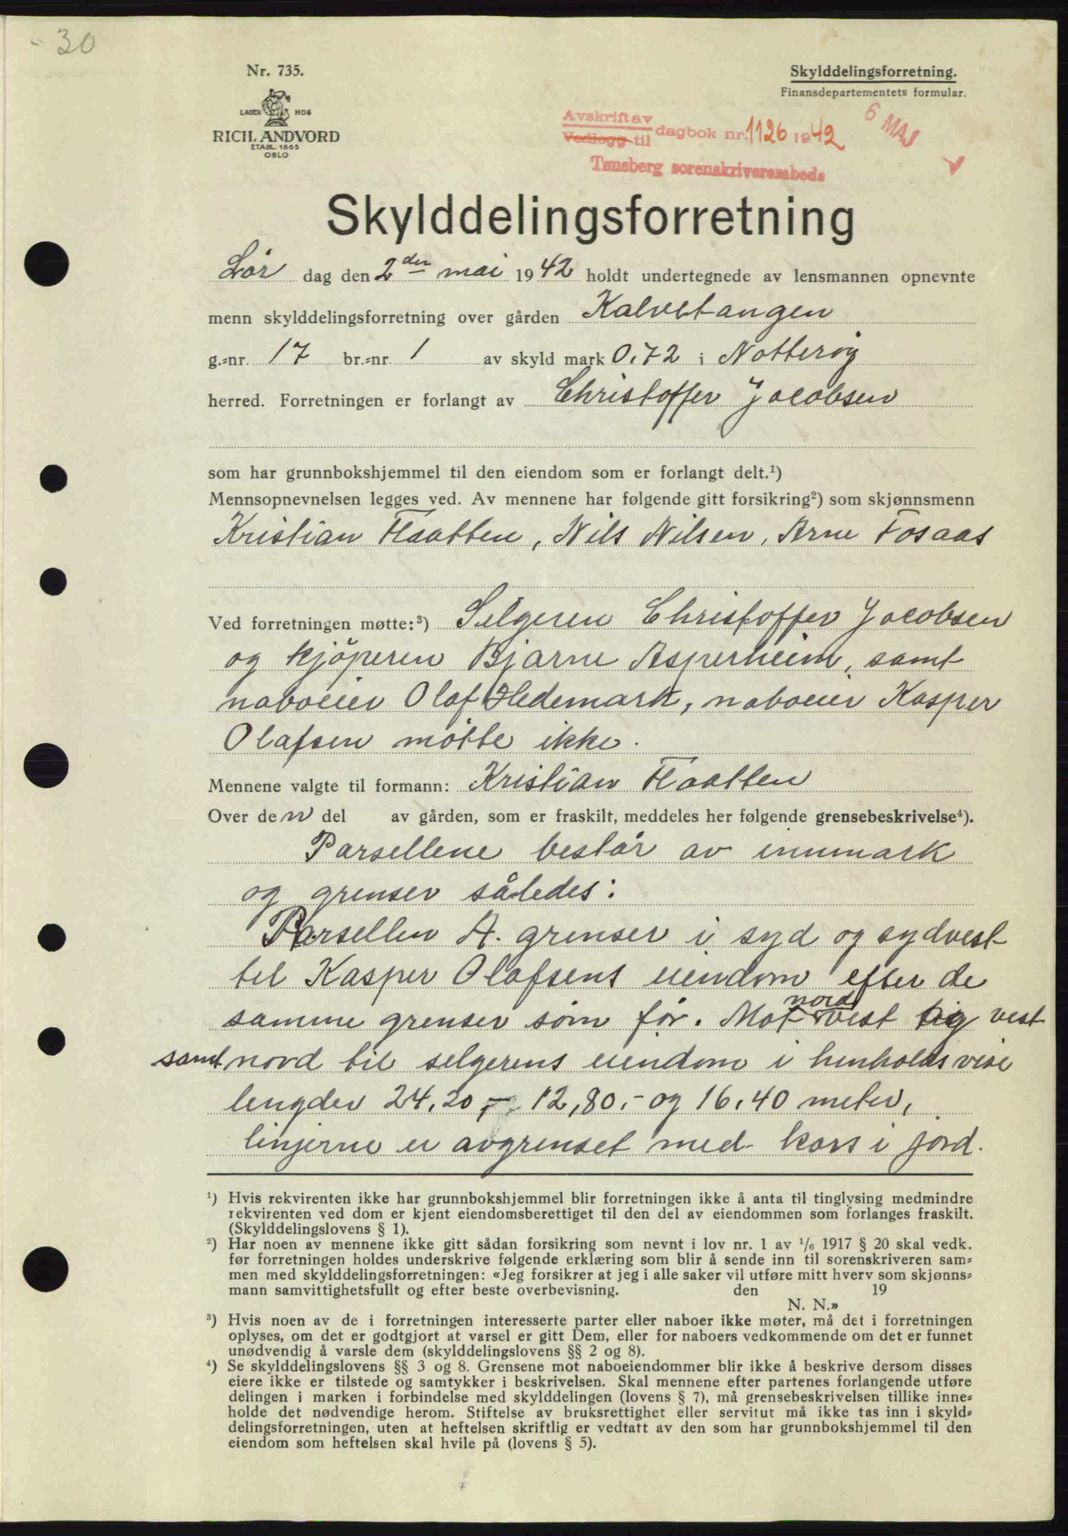 30
Nr. 735.
LAGER HOS
RICH. ANDVORD
ETABL. 1865
OSLO
Skylddelingsforretning.
Finansdepartementets formular.
Avskrift av
Vedlegg til dagbok nr. 1126 1942
6 MAI
Tønsberg sorenskriverembede
Skylddelingsforretning
Lør dag den 2den mai 1942 holdt undertegnede av lensmannen opnevnte
menn skylddelingsforretning over gården Kalvetangen
g.-nr. 17 br.-nr. 1 av skyld mark 0,72 i Nøtterøy
herred. Forretningen er forlangt av Christoffer Jacobsen
som har grunnbokshjemmel til den eiendom som er forlangt delt.¹)
Mennsopnevnelsen legges ved. Av mennene har følgende gitt forsikring²) som skjønnsmenn
Kristian Flaatten, Nils Nilsen, Arne Fosaas
Ved forretningen møtte:³) Selgeren Christoffer Jacobsen
og kjøperen Bjarne Asperheim, samt
naboeier Olaf Hedemark, naboeier Kasper
Olafsen møtte ikke.
Mennene valgte til formann: Kristian Flaatten
Over den del av gården, som er fraskilt, meddeles her følgende grensebeskrivelse⁴).
Parsellene består av innmark
og grenser således:
Parsellen A. grenser i syd og sydvest
til Kasper Olafsens eiendom efter de
samme grenser som før. Mot nordvest og vest
samt nord til selgerens eiendom i henholdsvise
lengder 24,20,- 12,80,- og 16,40 meter,
linjerne er avgrenset med kors i jord.
¹) Hvis rekvirenten ikke har grunnbokshjemmel blir forretningen ikke å anta til tinglysing medmindre
rekvirenten ved dom er kjent eiendomsberettiget til den del av eiendommen som forlanges fraskilt.
(Skylddelingslovens § 1).
²) Har noen av mennene ikke gitt sådan forsikring som nevnt i lov nr. 1 av 1/6 1917 § 20 skal vedk.
før forretningen holdes underskrive følgende erklæring som blir å sende inn til sorenskriveren sam-
men med skylddelingsforretningen: «Jeg forsikrer at jeg i alle saker vil utføre mitt hverv som skjønns-
mann samvittighetsfullt og efter beste overbevisning. den 19
N. N.»
³) Hvis noen av de i forretningen interesserte parter eller naboer ikke møter, må det i forretningen
oplyses, om det er godtgjort at varsel er gitt Dem, eller for naboers vedkommende om det er funnet
unødvendig å varsle dem (skylddelingslovens §§ 2 og 8).
⁴) Se skylddelingslovens §§ 3 og 8. Grensene mot naboeiendommer blir ikke å beskrive dersom disses
eiere ikke er tilstede og samtykker i beskrivelsen. Skal mennene efter partenes forlangende utføre
delingen i marken i forbindelse med skylddelingen (lovens § 7), må grensebeskrivelsen tillike inne-
holde det nødvendige herom. Stiftelse av bruksrettighet eller servitut må ikke tas inn i skyld-
delingsforretningen, uten at heftelsen skriftlig er vedtatt av den som har grunnbokshjemmel til den
eiendom som heftelsen skal hvile på (lovens § 5).